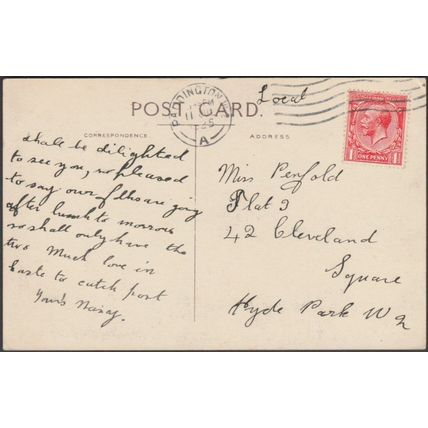 POST CARD.
PADDINGTON. W.2
A
Local
ONE PENNY
CORRESPONDENCE
ADDRESS
shall be dilighted
to see you, so pleased
to say our are going
after lunch to morrow
so shall only have the
two Much love in
haste to catch post
Yours
Miss Penfold
Flat 3
42 Cleveland
Square
Hyde Park W 2